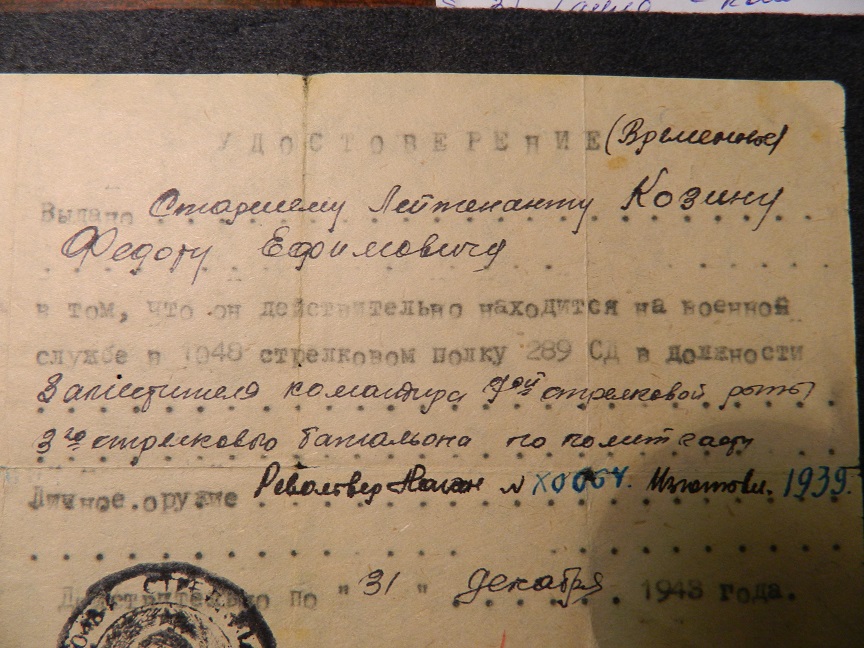 УДОСТОВЕРЕНИЕ (Временное)
Выдано Старшему Лейтенанту Козину
Федоту Ефимовичу
в том, что он действительно находится на военной
службе в 1048 стрелковом полку 289 СД в должности
Заместителя командира 7ой стрелковой роты
3го стрелкового батальона по политчасти
Личное.оружие Револьвер Наган № Изготовл. 1939.
Действительно по "31" декабря 1943 года.
1048 СТРЕЛ